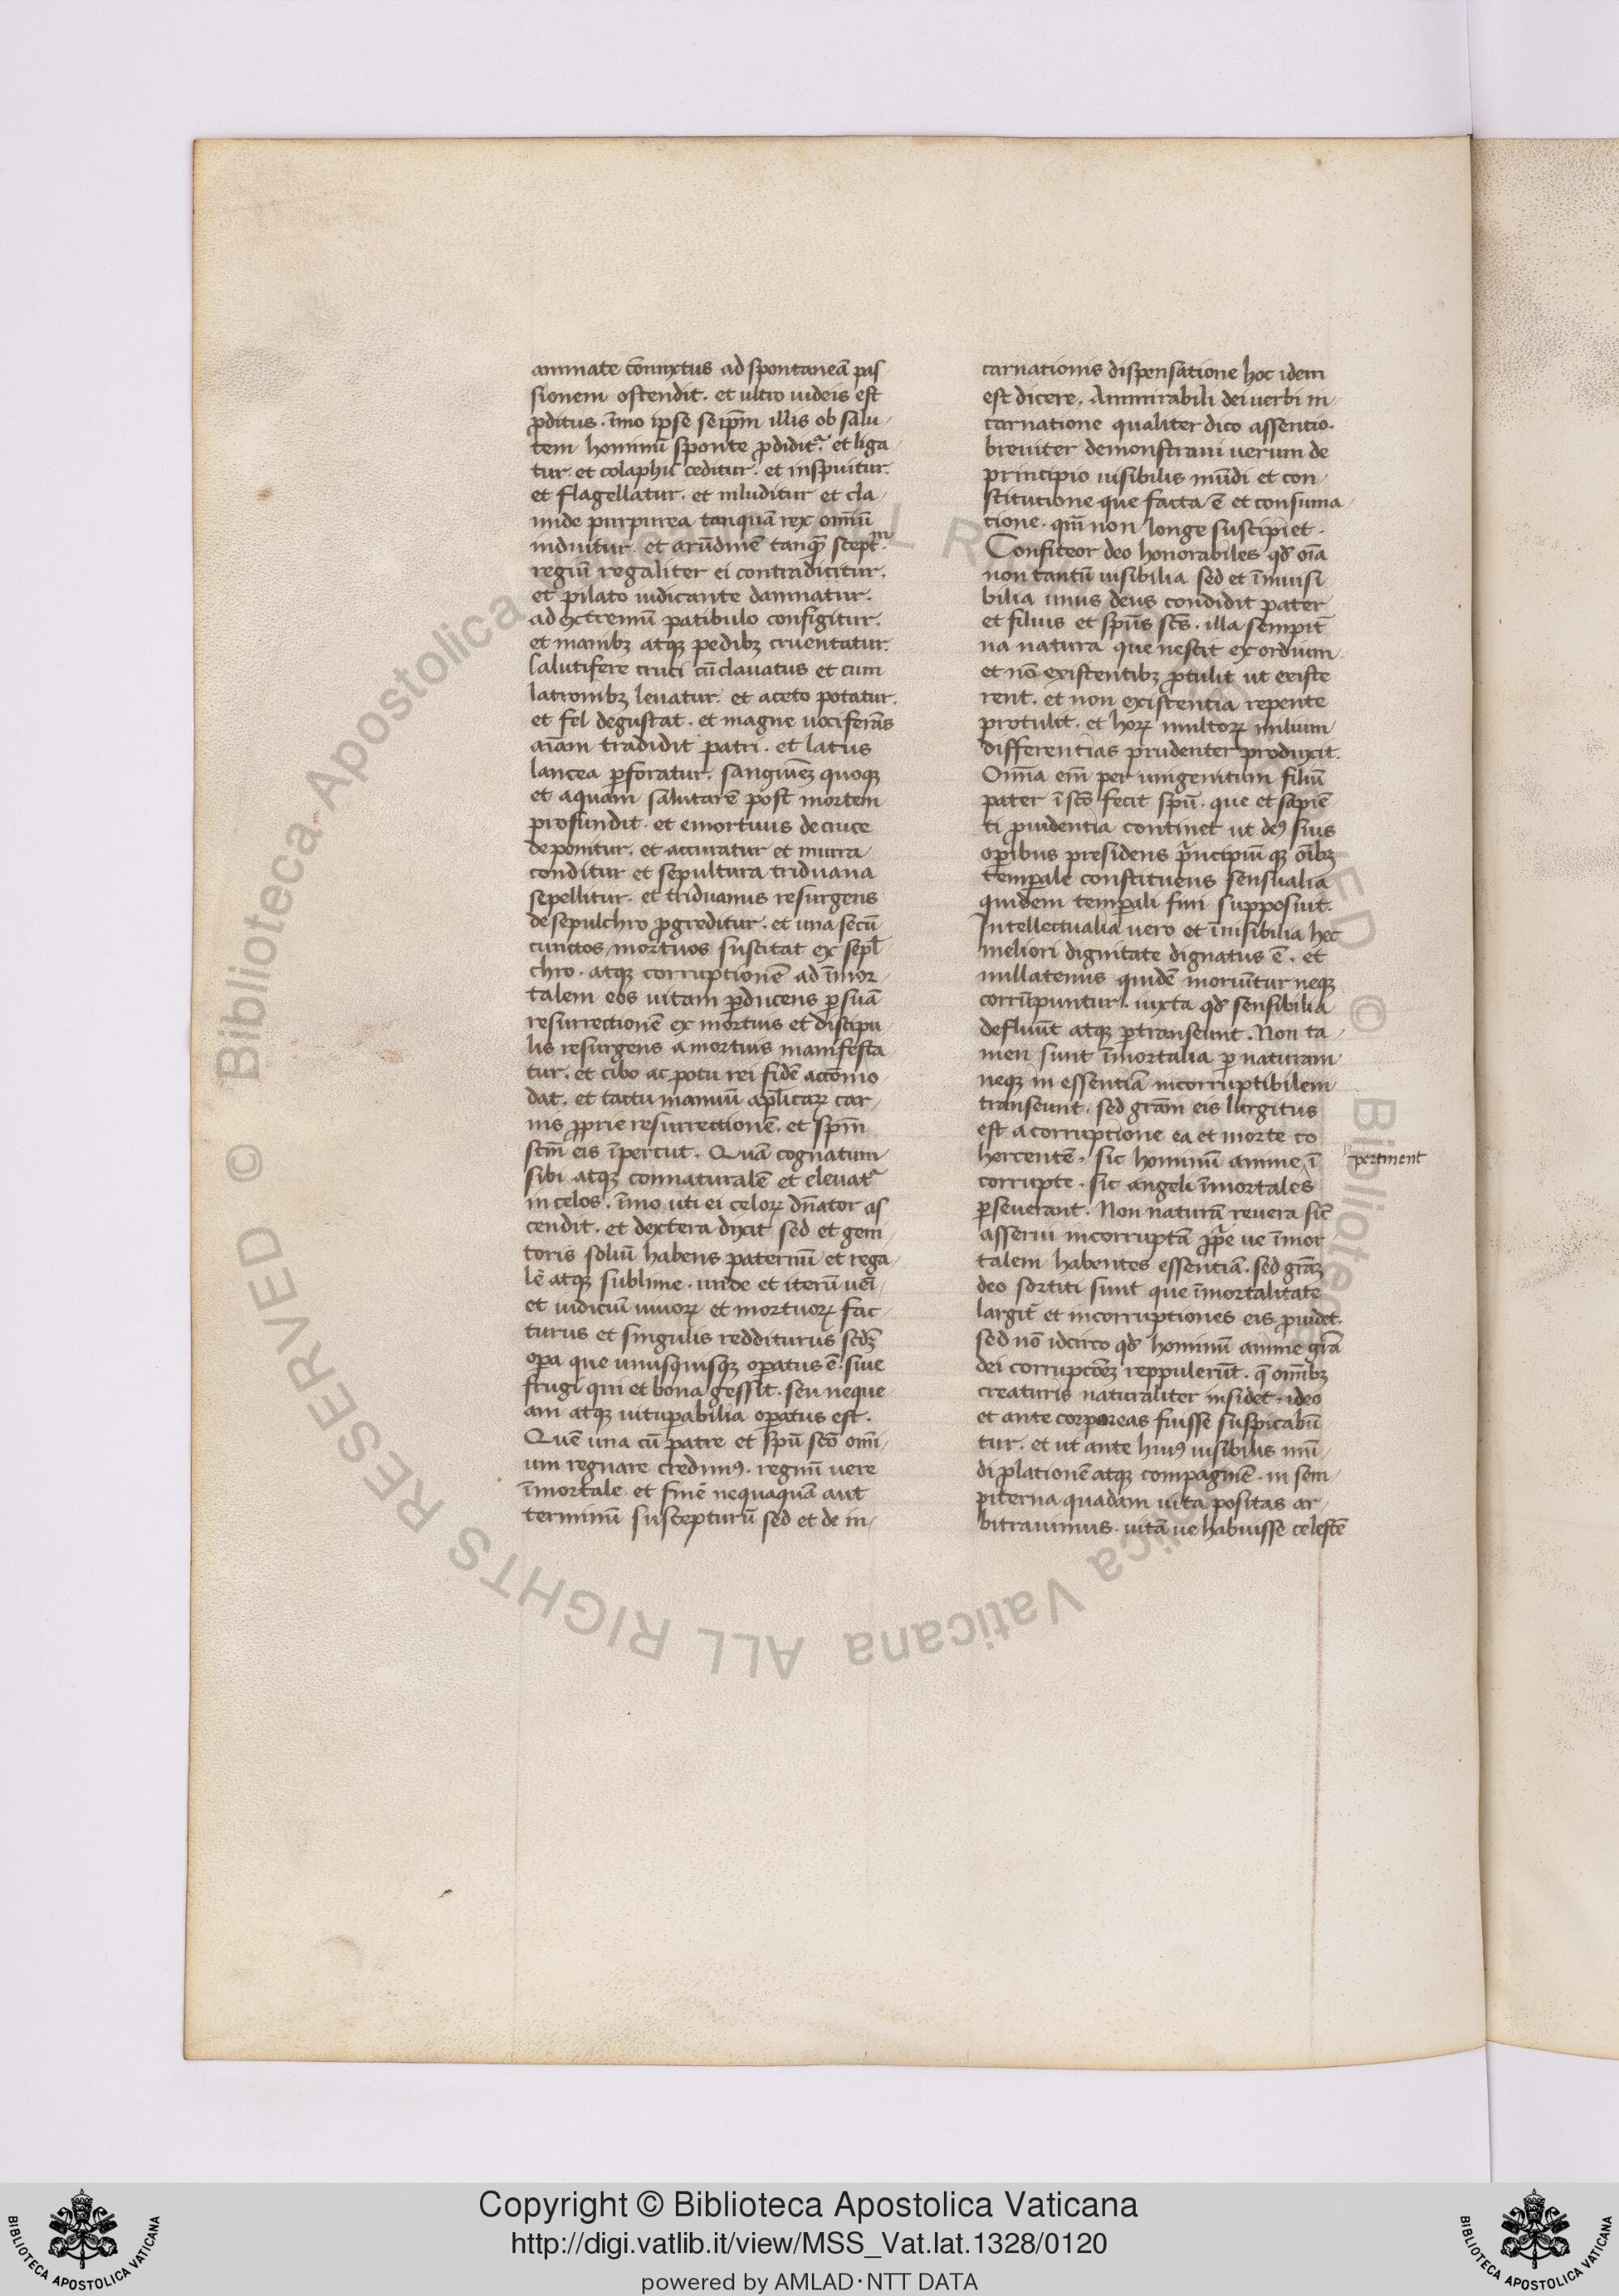 animate cōiunctus ad spontaneā pas
sionem ostendit. et ultro iudeis est
ꝓditus. īmo ipse seip̄m illis ob salu-
tem hominū sponte ꝓdidit. et liga-
tur. et colaphis ceditur. et inspuitur.
et flagellatur. et inluditur et cla-
mide purpurea tanquā rex omniū
induitur. et arūdinē tanqꝫ sceptrm
regiū regaliter ei contradicitur.
et pilato iudicante damnatur.
ad extremū patibulo configitur.
et manibꝫ atqꝫ pedibꝫ cruentatur.
salutifere cruci cū clauatus et cum
latronibꝫ leuatur. et aceto potatur.
et fel degustat. et magne uociferās
aīam tradidit patri. et latus
lancea ꝑforatur. sanguinē quoqꝫ
et aquam salutarē post mortem
profundit. et emortuus de cruce
deponitur. et accuratur et murra
conditur et sepultura triduana
sepellitur. et triduanus resurgens
de sepulchro ꝓgreditur. et una secū
cunctos mortuos suscitat ex sepl
chro. atqꝫ corruptionē ad īmor-
talem eos uitam ꝑducens ꝑ suā
resurrectionē ex mortuis et discipu
lis resurgens a mortuis manifesta-
tur. et cibo ac potu rei fidē accōmo-
dat. et tactu manuū aplicaꝝ car-
nis ꝓprie resurrectionē. et spm̄
scm̄ eis īpertit. Quā cognatum
sibi atqꝫ connaturalē et eleuat
in celos. īmo uti ei celoꝝ dn̄ator as
cendit. et dextera dixit sed et geni-
toris soliū habens paternū et rega-
lē atqꝫ sublime. unde et iterū uēi-
et iudiciū uiuoꝝ et mortuoꝝ fac-
turus et singulis redditurus scdꝫ
oꝑa que unusquisqꝫ oꝑatus ē. siue
frugi qui et bona gessit. seu neque
am atqꝫ uituꝑabilia oꝑatus est.
Quē una cū patre et spū scō omī-
um regnare credimꝰ. regnū uere
īmortale et finē nequaquā aut
terminū suscepturū sed et de in-
carnationis dispensatione hoc idem
est dicere. Ammirabili dei uerbi in-
carnatione qualiter dico assentio.
breuiter demonstraui uerum de
principio uisibilis mūdi et con-
stitutione que facta ē et consuma-
tione. qm̄ non longe suscipiet.
Confiteor deo honorabiles qđ oīa
non tantū uisibilia sed et īuisi
bilia unus deus condidit pater
et filius et spūs scs̄. illa sempit̄
na natura que nescit exordium
et nō existentibꝫ ꝓtulit ut existe
rent. et non existentia repente
protulit. et hoꝝ multoꝝ
differentias prudenter produxit.
Omīa em̄ per unigenitum filiū
pater ī scō fecit spū. que et sapiē
ti ꝓuidentia continet ut deꝰ suis
oꝑibus presidens pncipiū qꝫ oībꝫ
temꝑale constituens sensualia
quidem temꝑali fini supposuit.
Intellectualia uero et īuisibilia hec
meliori dignitate dignatus ē. et
nullatenus quidē moriūtur neqꝫ
corrūpuntur. iuxta qđ sensibilia
defluūt atqꝫ ꝑtranseunt. Non ta-
men sunt īmortalia ꝑ naturam
neqꝫ in essentiā incorruptibilem
transeunt. sed grām eis largitus
est a corruptione ea et morte co
hercentē. sic hominū anime ī
pertinent
corrupte. sic angeli īmortales
ꝑseuerant. Non naturā reuera sic̄
asserui incorruptā ꝓpe ue īmor-
talem habentes essentiā. sed grāꝫ
deo sortiti sunt que īmortalitatē
largit̄ et incorruptiones eis ꝓuidet.
sed nō idcirco qđ hominū anime grā
dei corrupcōeꝫ reppulerūt. q̄ omībꝫ
creaturis naturaliter insidet. ideo
et ante corporeas fuisse suspicabū-
tur. et ut ante huiꝰ uisibilis mū-
di ꝓlationē atqꝫ compaginē. in sem-
piterna quadam uita positas ar-
bitrauimus. uitā ue habuisse celestē
Copyright © Biblioteca Apostolica Vaticana
http://digi.vatlib.it/view/MSS_Vat.lat.1328/0120
powered by AMLAD·NTT DATA
BIBLIOTECA APOSTOLICA VATICANA
BIBLIOTECA APOSTOLICA VATICANA
© Biblioteca Apostolica Vaticana ALL RIGHTS RESERVED